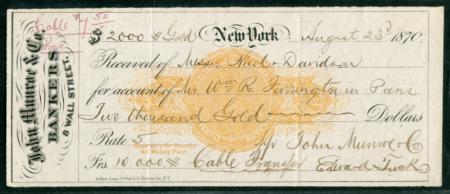 Cable $7.50
$2000 Gold New York August 23d 1870.
Received of Messrs Nicol & Davidson
for account of Mr. Wm. R. Farrington in Paris
Two thousand Gold Dollars
Rate 5
pr John Munroe & Co
Frs. 10.000 Cable Transfer Edward Tuck
John Munroe & Co.
BANKERS,
8 WALL STREET.